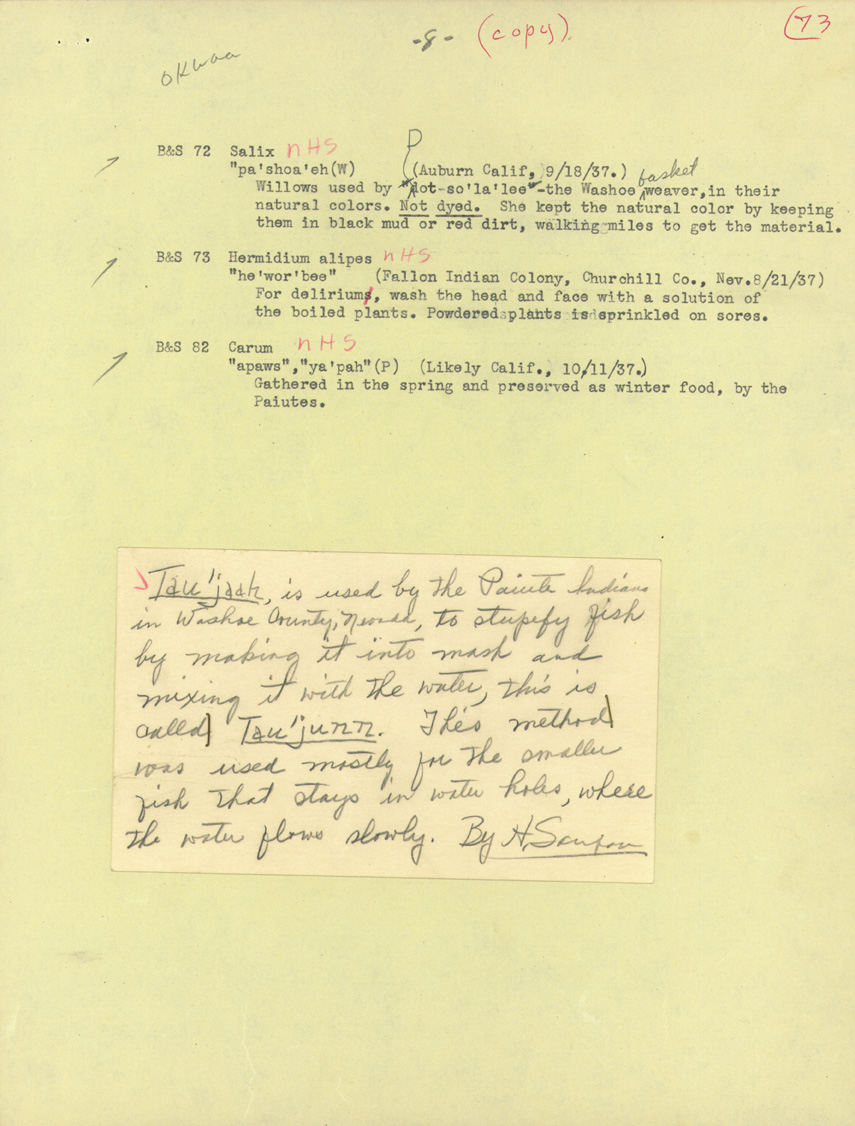 -8- (copy) 73
okwaa
B&S 72 Salix NHS
"pa'shoa'eh(W) P (Auburn Calif, 9/18/37.) basket
Willows used by "dot-so'la'lee"-the Washoe weaver, in their
natural colors. Not dyed. She kept the natural color by keeping
them in black mud or red dirt, walking miles to get the material.
B&S 73 Hermidium alipes NHS
"he'wor'bee" (Fallon Indian Colony, Churchill Co., Nev.8/21/37)
For deliriums, wash the head and face with a solution of
the boiled plants. Powdered plants is sprinkled on sores.
B&S 82 Carum NHS
"apaws","ya'pah"(P) (Likely Calif., 10/11/37.)
Gathered in the spring and preserved as winter food, by the
Paiutes.
Tau'jaah, is used by the Paiute Indians
in Washoe County, Nevada, to stupefy fish
by making it into mash and
mixing it with the water, this is
called Tau'junn. This method
was used mostly for the smaller
fish that stays in water holes, where
the water flows slowly. By H. Sampson